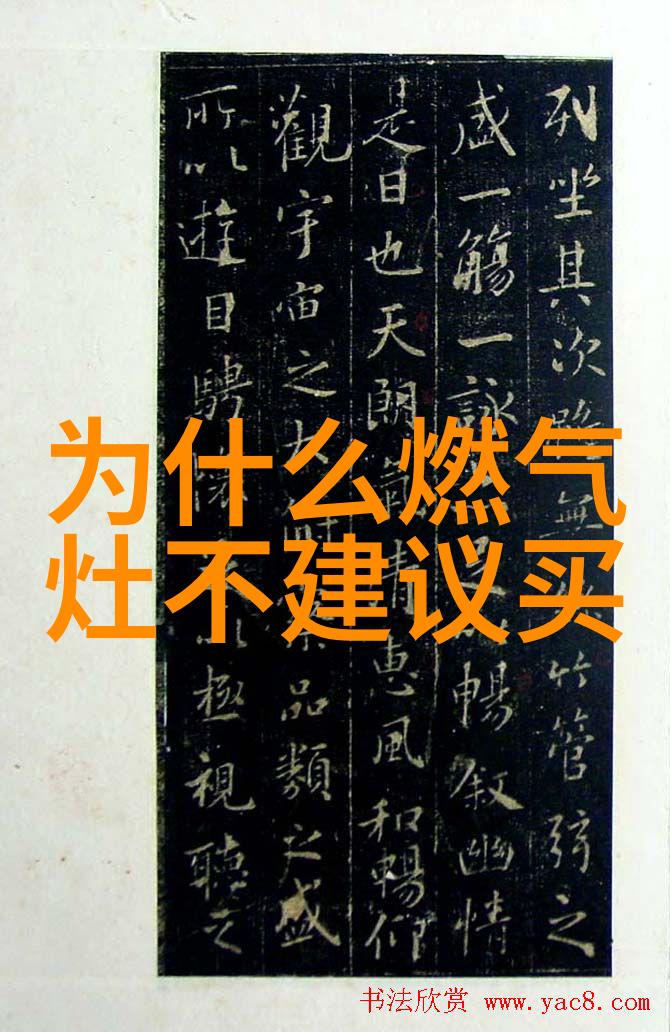 为什么燃气
灶不建议买
列坐其次雖無竹管弦之
盛一觴一詠足暢敘幽情
是日也天朗氣清惠風和暢仰
觀宇宙之大品類之盛
所以遊目騁極視聽之
书法欣赏 www.yac8.com